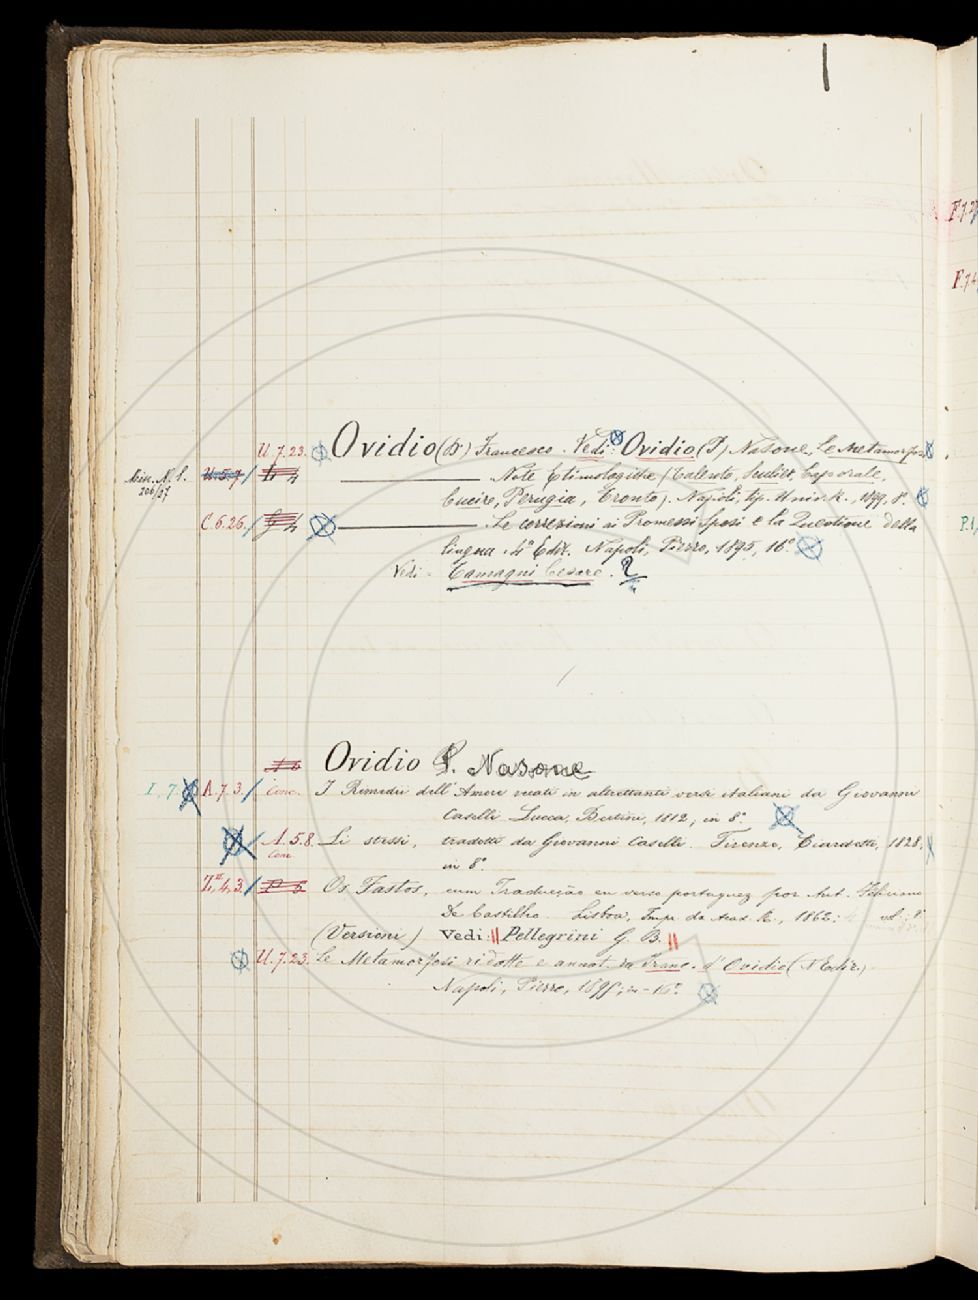 U. 7. 23. Ovidio (D') Francesco. Vedi: Ovidio (P.) Nasone, Le Metamorfosi
Misc. N. S. U. 5. 7 Note Etimologiche (Talento, Scudiet, Caporale,
Cucire, Perugia, Tronto). Napoli, tip. Univ. R., 1899, 8°.
C. 6. 26. Le correzioni ai Promessi Sposi e la Questione della
lingua. 4ª Ediz. Napoli, Pierro, 1895, 16°
Vedi = Camagni Cesare. ?
Ovidio P. Nasone
I. 7. A. 7. 3. Conc. I Rimedii dell'Amore recati in altrettanti versi italiani da Giovanni
Caselli. Lucca, Bertini, 1812, in 8°.
A. 5. 8. Li stessi, tradotti da Giovanni Caselli. Firenze, Ciardetti, 1828,
Conc.
in 8°.
4. 3. Os Fastos, cum Traducção em verso portuguez por Ant. Feliciano
De Castilho. Lisboa, Imp. da Acad. R., 1862:
(Versioni) Vedi: Pellegrini G. B.
U. 7. 23. Le Metamorfosi ridotte e annot. da Franc. d'Ovidio (Ediz.)
Napoli, Pierro, in-16°.
F. 7.
F. 7.
P. 1.